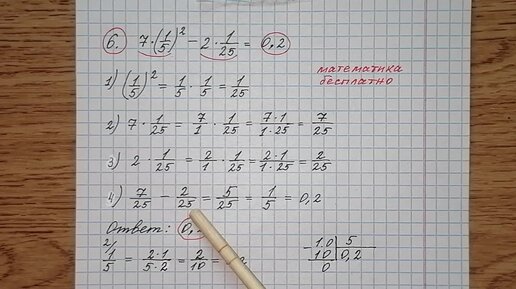 6. 7·(1/5)² − 2·1/25 = 0,2
математика
бесплатно
1) (1/5)² = 1/5 · 1/5 = 1/25
2) 7 · 1/25 = 7/1 · 1/25 = 7·1/1·25 = 7/25
3) 2 · 1/25 = 2/1 · 1/25 = 2·1/1·25 = 2/25
4) 7/25 − 2/25 = 5/25 = 1/5 = 0,2
Ответ: 0,
2/ 1/5 = 2·1/5·2 = 2/10 = 2
1.0 | 5
− 10 | 0,2
0